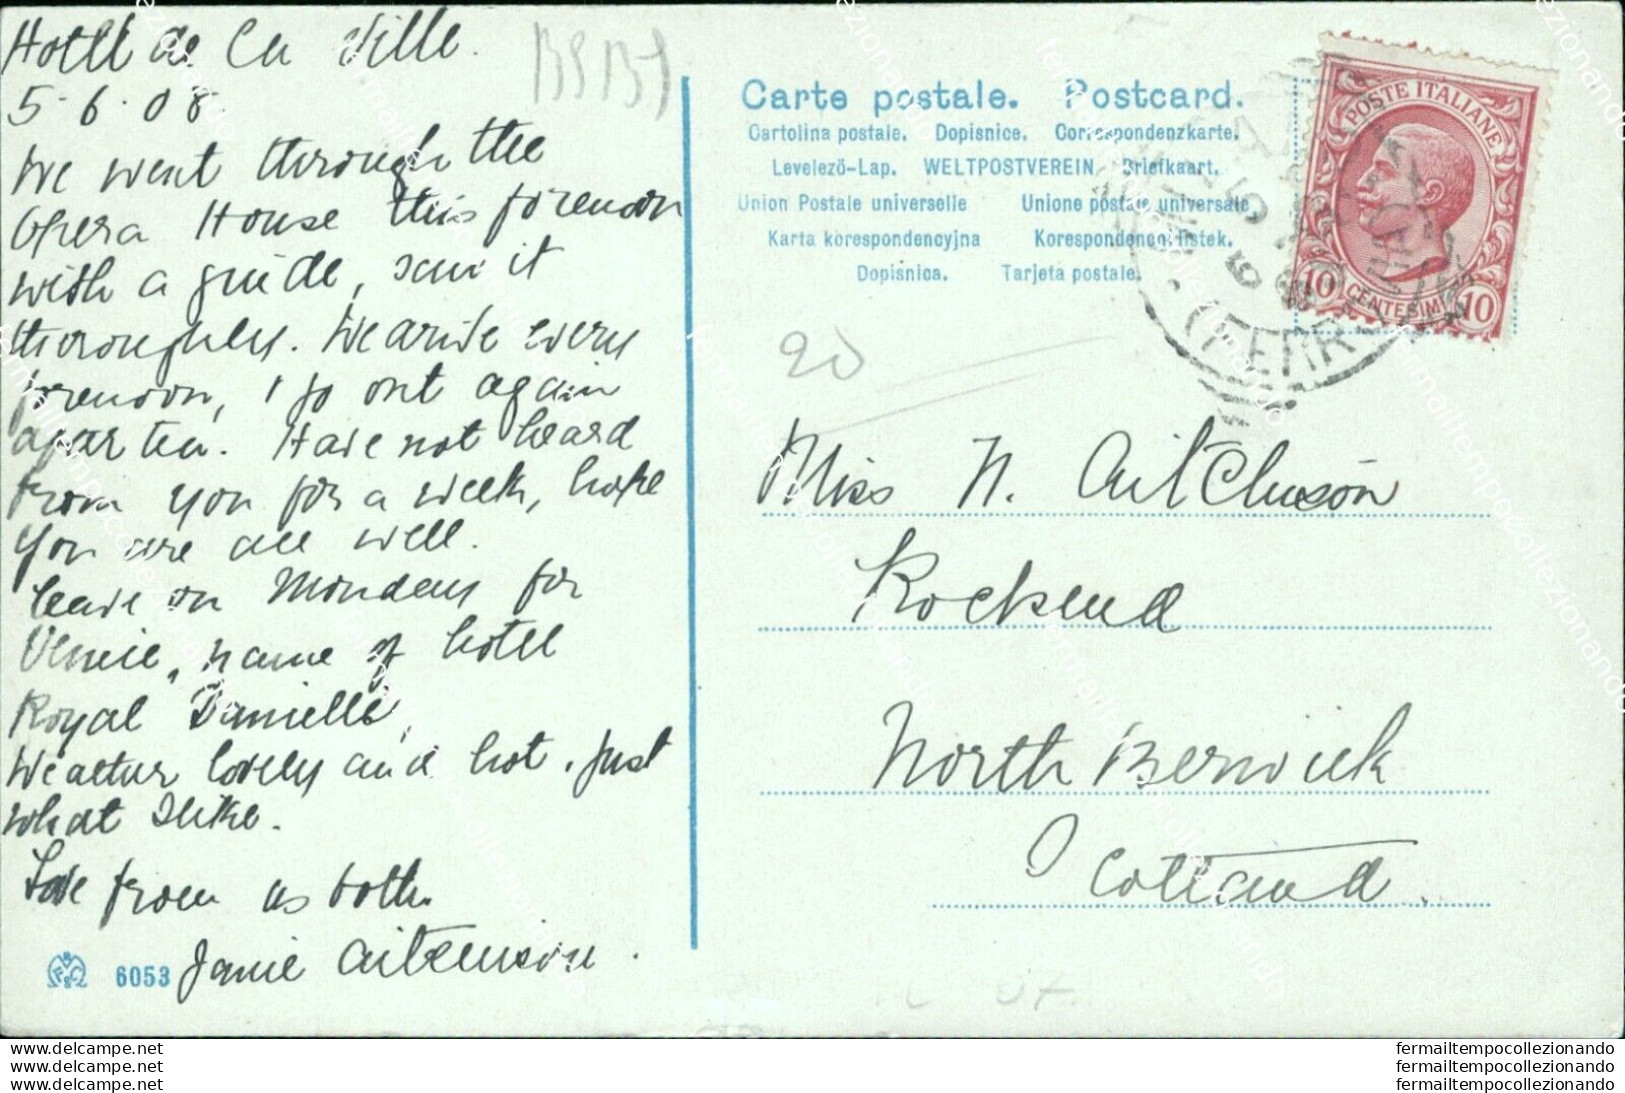 Hotel de la Ville.
5.6.08
BSB9
We went through the
Opera House this forenoon
with a guide, saw it
thoroughly. We drive every
forenoon, & go out again
after tea. Have not heard
from you for a week, hope
you are all well.
leave on Monday for
Venice, name of hotel
Royal Danielli,
Weather lovely and hot. Just
what I like.
Love from us both.
Janie Aitchison.
6053
Carte postale. Postcard.
Cartolina postale. Dopisnice. Correspondenzkarte.
Levelező-Lap. WELTPOSTVEREIN Briefkaart.
Union Postale universelle Unione postale universale
Karta korespondencyjna Korespondenční lístek.
Dopisnica. Tarjeta postale.
POSTE ITALIANE
10 CENTESIMI 10
MILANO
5 6 08
(FERROVIA)
20
Miss N. Aitchison
Rockend
North Berwick
Scotland.
www.delcampe.net
www.delcampe.net
www.delcampe.net
fermailtempocollezionando
fermailtempocollezionando
fermailtempocollezionando